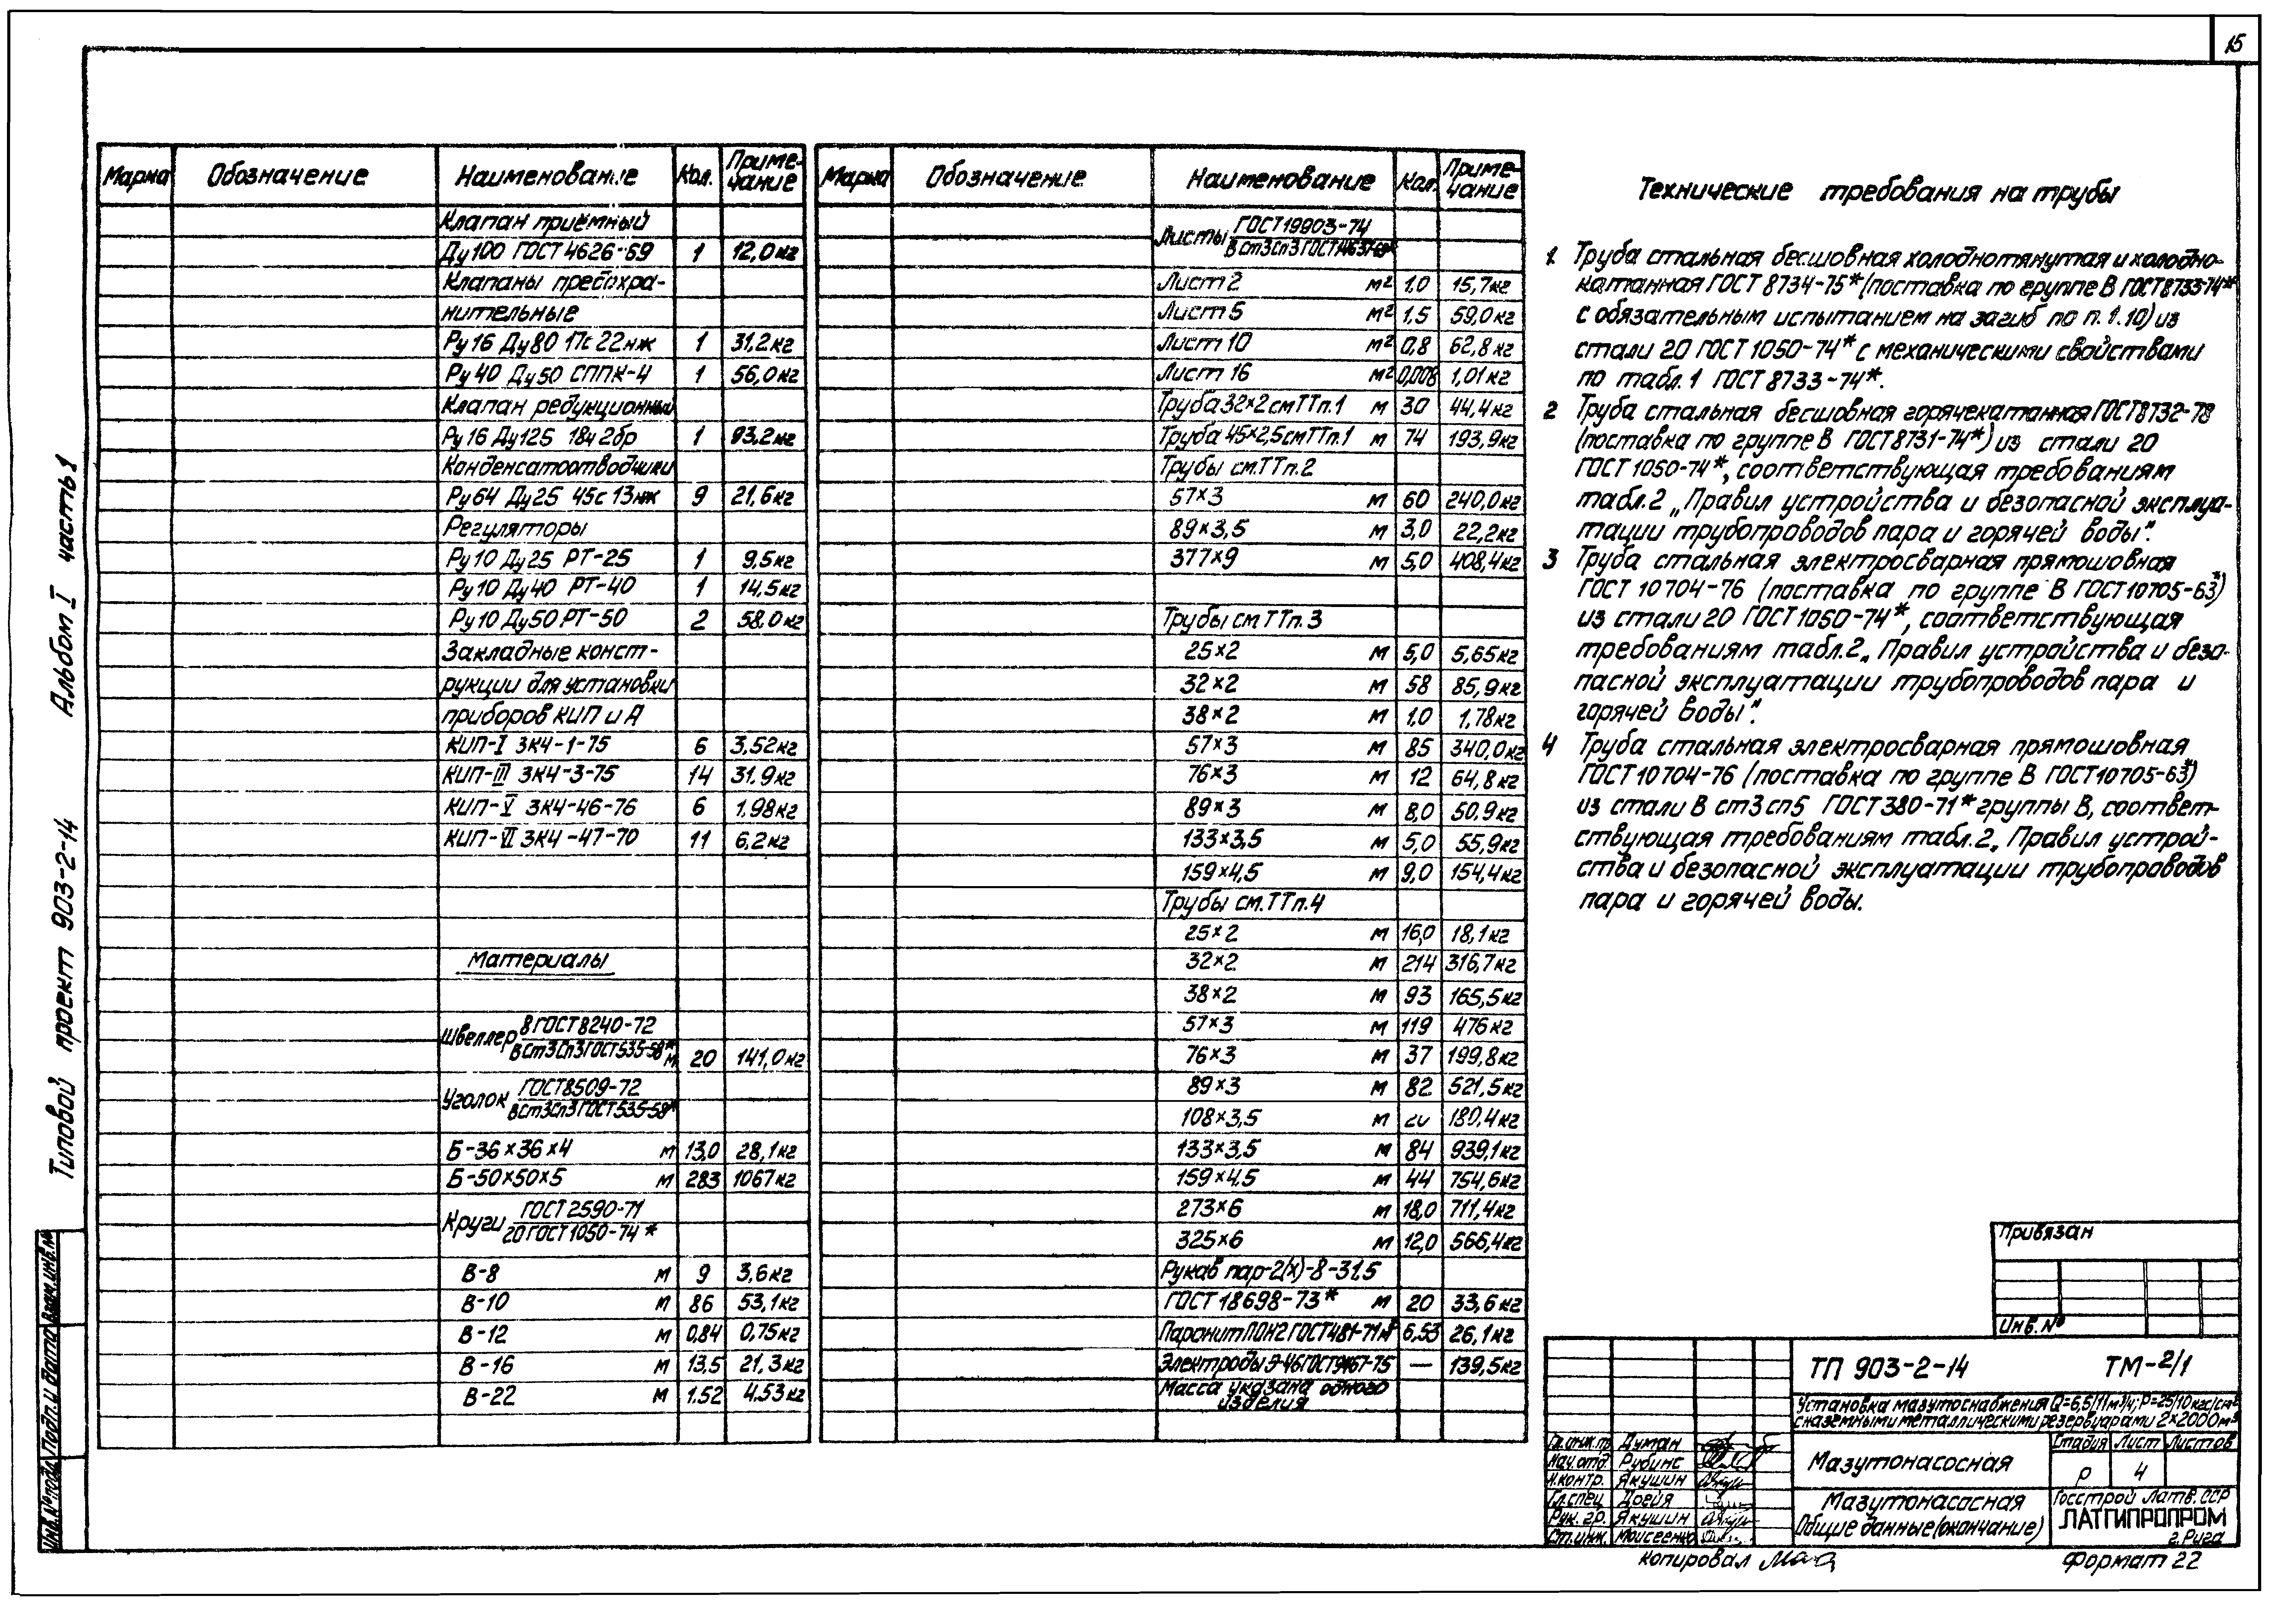 15
Марка Обозначение Наименование Кол. Приме-чание
Клапан приёмный
Ду100 ГОСТ 4626-69 1 12,0кг
Клапаны предохра-
нительные
Ру16 Ду80 17с22нж 1 31,2кг
Ру40 Ду50 СППК-4 1 56,0кг
Клапан редукционный
Ру16 Ду125 18ч2бр 1 93,2кг
Конденсатоотводчики
Ру64 Ду25 45с13нж 9 21,6кг
Регуляторы
Ру10 Ду25 РТ-25 1 9,5кг
Ру10 Ду40 РТ-40 1 14,5кг
Ру10 Ду50 РТ-50 2 58,0кг
Закладные конст-
рукции для установки
приборов КИП и А
КИП-I ЗК4-1-75 6 3,52кг
КИП-III ЗК4-3-75 14 31.9кг
КИП-V ЗК4-46-76 6 1,98кг
КИП-VI ЗК4-47-70 11 6,2кг
Материалы
Швеллер 8 ГОСТ 8240-72
ВСт3Сп3 ГОСТ 535-58* м 20 141,0кг
Уголок ГОСТ 8509-72
ВСт3Сп3 ГОСТ 535-58*
Б-36×36×4 м 13,0 28,1кг
Б-50×50×5 м 283 1067кг
Круги ГОСТ 2590-71
20 ГОСТ 1050-74*
В-8 м 9 3,6кг
В-10 м 86 53,1кг
В-12 м 0,84 0,75кг
В-16 м 13,5 21,3кг
В-22 м 1.52 4.53кг
Марка Обозначение Наименование Кол. Приме-чание
Листы ГОСТ 19903-74
ВСт3Сп3 ГОСТ 14637-69*
Лист 2 м² 1.0 15,7кг
Лист 5 м² 1.5 59,0кг
Лист 10 м² 0,8 62,8кг
Лист 16 м² 0,008 1,01кг
Труба 32×2 см ТТ п.1 м 30 44,4кг
Труба 45×2,5 см ТТ п.1 м 74 193,9кг
Трубы см.ТТ п.2
57×3 м 60 240,0кг
89×3,5 м 3,0 22,2кг
377×9 м 5,0 408,4кг
Трубы см.ТТ п.3
25×2 м 5,0 5,65кг
32×2 м 58 85,9кг
38×2 м 1.0 1,78кг
57×3 м 85 340,0кг
76×3 м 12 64,8кг
89×3 м 8,0 50.9кг
133×3,5 м 5,0 55,9кг
159×4,5 м 9,0 154,4кг
Трубы см.ТТ п.4
25×2 м 16,0 18,1кг
32×2 м 214 316,7кг
38×2 м 93 165,5кг
57×3 м 119 476кг
76×3 м 37 199,8кг
89×3 м 82 521,5кг
108×3,5 м 180,4кг
133×3,5 м 84 939,1кг
159×4.5 м 44 754,6кг
273×6 м 18,0 711,4кг
325×6 м 12,0 566,4кг
Рукав пар-2(х)-8-31.5
ГОСТ 18698-73* м 20 33,6кг
Паронит ПОН2 ГОСТ 481-71 м² 6,53 26,1кг
Электроды Э-46 ГОСТ 9467-75 — 139,5кг
Масса указана одного
изделия
Технические требования на трубы
1. Труба стальная бесшовная холоднотянутая и холодно-
катанная ГОСТ 8734-75* (поставка по группе В ГОСТ 8733-74*
с обязательным испытанием на загиб по п.1.10) из
стали 20 ГОСТ 1050-74* с механическими свойствами
по табл.1 ГОСТ 8733-74*.
2 Труба стальная бесшовная горячекатанная ГОСТ 8732-78
(поставка по группе В ГОСТ 8731-74*) из стали 20
ГОСТ 1050-74*, соответствующая требованиям
табл.2 „Правил устройства и безопасной эксплуа-
тации трубопроводов пара и горячей воды".
3 Труба стальная электросварная прямошовная
ГОСТ 10704-76 (поставка по группе В ГОСТ 10705-63*)
из стали 20 ГОСТ 1050-74*, соответствующая
требованиям табл.2 „Правил устройства и безо-
пасной эксплуатации трубопроводов пара и
горячей воды".
4 Труба стальная электросварная прямошовная
ГОСТ 10704-76 (поставка по группе В ГОСТ 10705-63*)
из стали В ст3сп5 ГОСТ 380-71* группы В, соответ-
ствующая требованиям табл.2 „Правил устрой-
ства и безопасной эксплуатации трубопроводов
пара и горячей воды.
Привязан
Инв.№
ТП 903-2-14 ТМ-2/1
Установка мазутоснабжения Q=6,5/11м³/ч; Р=25/10кгс/см²
с наземными металлическими резервуарами 2×2000м³
Гл.инж.пр. Думан
Нач.отд. Рубинс
Н.контр. Якушин
Гл.спец. Дрейя
Рук.гр. Якушин
Ст.инж. Моисеенко
Мазутонасосная
Стадия Лист Листов
Р 4
Мазутонасосная
Общие данные (окончание)
Госстрой Латв.ССР
ЛАТГИПРОПРОМ
г.Рига
Копировал
Формат 22
Типовой проект 903-2-14 Альбом I часть 1
Инв.№ подл. Подп. и дата Взам.инв.№